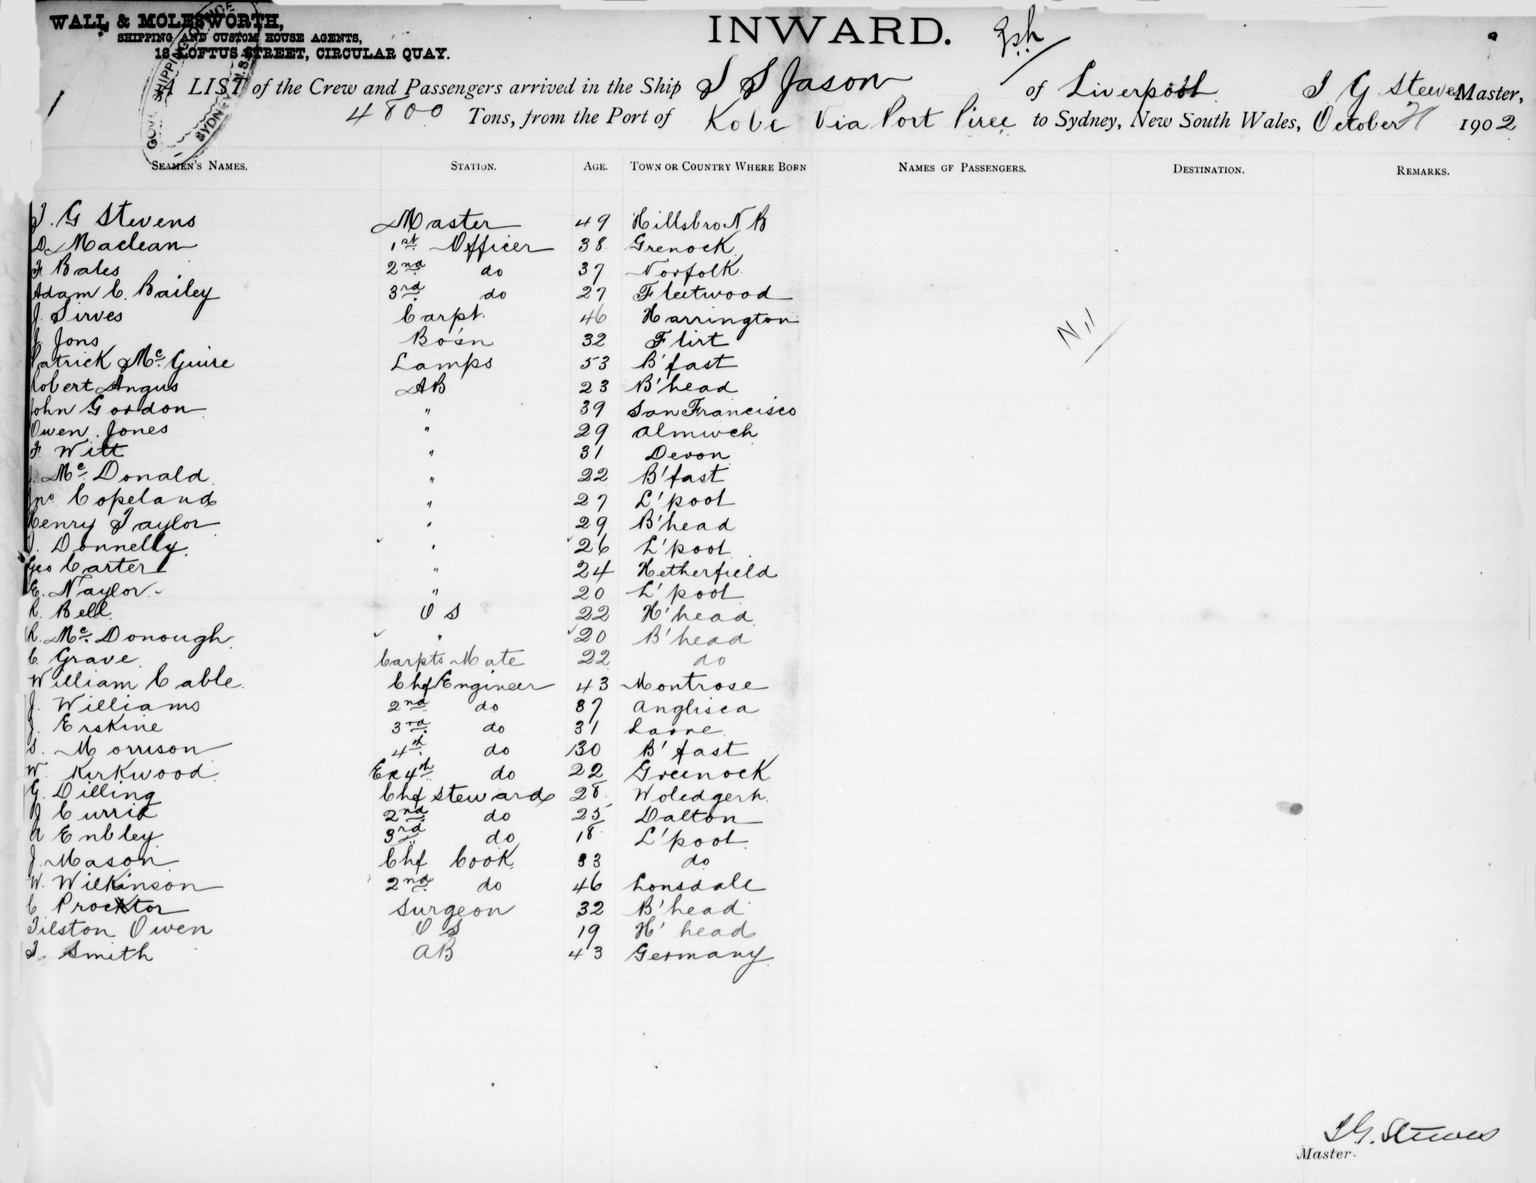 WALL & MOLESWORTH,
SHIPPING AND CUSTOM HOUSE AGENTS,
18 LOFTUS STREET, CIRCULAR QUAY.
INWARD.
A LIST of the Crew and Passengers arrived in the Ship S S Jason of Liverpool J G Stevens Master,
4800 Tons, from the Port of Kobe Via Port Piree to Sydney, New South Wales, October 1902
SEAMEN'S NAMES. STATION. AGE. TOWN OR COUNTRY WHERE BORN NAMES OF PASSENGERS. DESTINATION. REMARKS.
J. G Stevens Master 49 Hillsbro N B
D. Maclean 1st Officer 38 Grenock
F Bales 2nd do 37 Norfolk
Adam C. Bailey 3rd do 27 Fleetwood
J. Sirves Carpt. 46 Harrington
J Jons Bo'sn 32 Flirt
Nil
Patrick McGuire Lamps 53 B'fast
Robert Angus AB 23 B'head
John Gordon " 39 San Francisco
Owen Jones " 29 Almwch
F Witt " 31 Devon
McDonald " 22 B'fast
Jno Copeland " 27 L'pool
Henry Taylor " 29 B'head
J. Donnelly " 26 L'pool
Geo Carter " 24 Hetherfield
E. Naylor " 20 L'pool
R. Bell O S 22 H'head
R. McDonough " 20 B'head
C Grave Carpts Mate 22 do
William Cable Chf Engineer 43 Montrose
J. Williams 2nd do 37 Anglisea
J. Erskine 3rd do 31 Larne
S. Morrison 4th do 30 B'fast
W. Kirkwood Ex 4th do 22 Greenock
G. Dilling Chf Steward 28 Woledgerh
J Currie 2nd do 25 Dalton
A Enbley 3rd do 18 L'pool
J. Mason Chf Cook 33 do
W. Wilkinson 2nd do 46 Lonsdale
C Procktor Surgeon 32 B'head
Tilston Owen O S 19 H'head
T. Smith AB 43 Germany
J G. Stevens
Master.